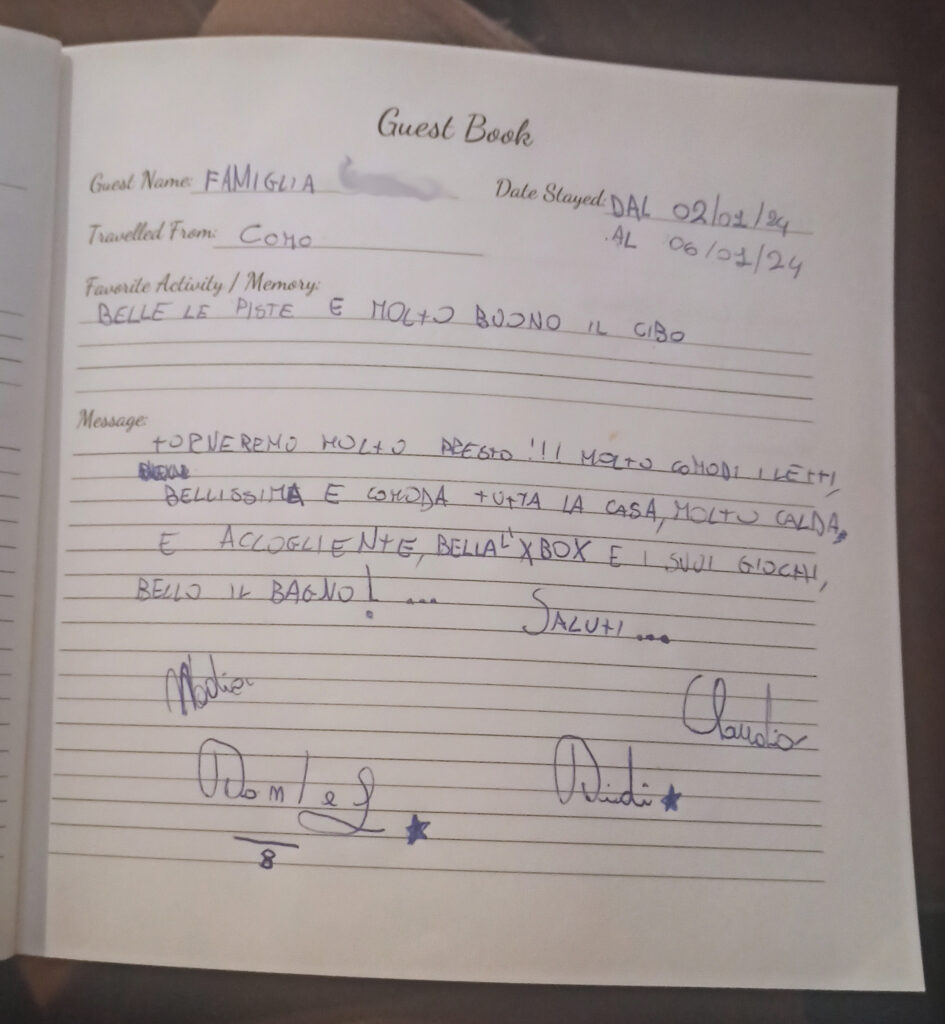 Guest Book
Guest Name: FAMIGLIA
Date Stayed: DAL 02/01/24
AL 06/01/24
Travelled From: COMO
Favorite Activity / Memory:
BELLE LE PISTE E MOLTO BUONO IL CIBO
Message:
TORNEREMO MOLTO PRESTO!!! MOLTO COMODI I LETTI,
BELLISSIMA E COMODA TUTTA LA CASA, MOLTO CALDA,
E ACCOGLIENTE, BELLA L'XBOX E I SUOI GIOCHI,
BELLO IL BAGNO! ...
SALUTI ...
Claudio
Didi
8